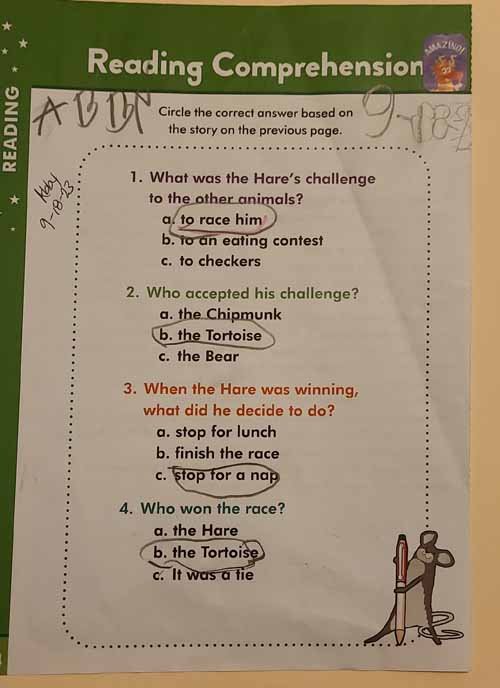 Reading Comprehension
AMAZING!
READING
Circle the correct answer based on
the story on the previous page.
9-18-23
1. What was the Hare's challenge
to the other animals?
a. to race him
b. to an eating contest
c. to checkers
2. Who accepted his challenge?
a. the Chipmunk
b. the Tortoise
c. the Bear
3. When the Hare was winning,
what did he decide to do?
a. stop for lunch
b. finish the race
c. stop for a nap
4. Who won the race?
a. the Hare
b. the Tortoise
c. It was a tie